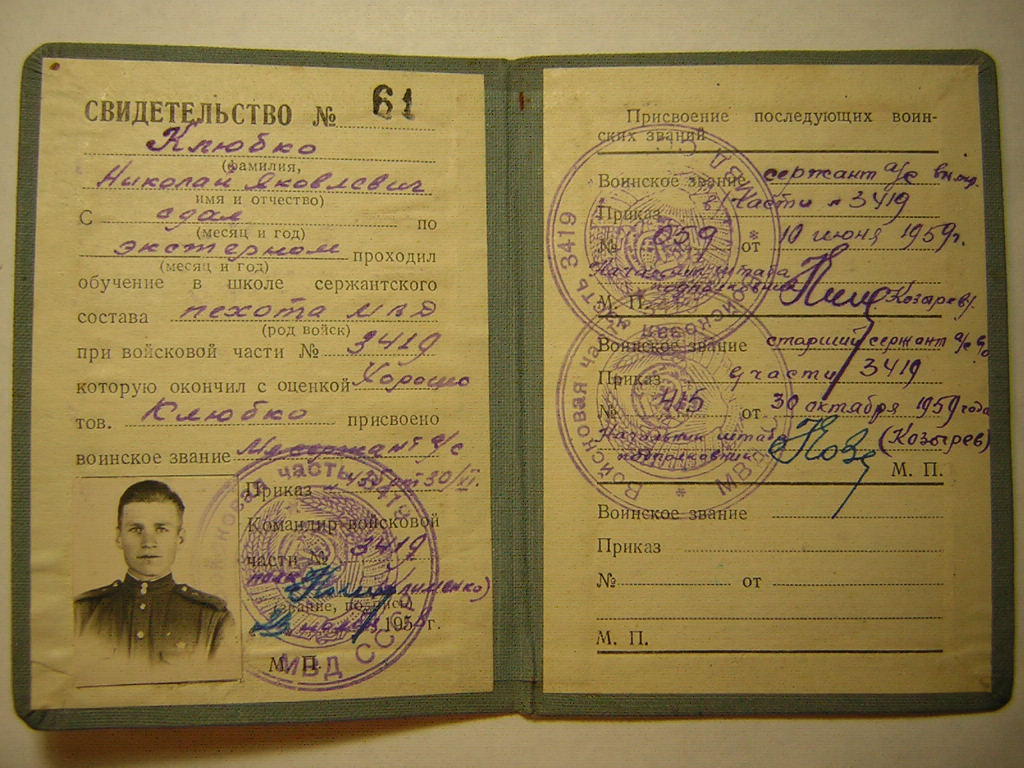 СВИДЕТЕЛЬСТВО № 61
Клюбко
(фамилия,
Николай Яковлевич
имя и отчество)
С сдал по
(месяц и год)
экстерном проходил
(месяц и год)
обучение в школе сержантского
состава пехота МВД
(род войск)
при войсковой части № 3419
которую окончил с оценкой Хорошо
тов. Клюбко присвоено
воинское звание Мл сержант а/с
Приказ 430 от 30/XI.
Командир войсковой
части № 3419
(звание, подпись)
195 г.
М. П.
Войсковая часть 3419
МВД СССР
Присвоение последующих воин-
ских званий
Воинское звание сержант а/с вн.сл.
Приказ Части № 3419
№ 059 от 10 июня 1959г.
Начальник штаба
подполковник
М. П. Козырев/.
Воинское звание старший сержант а/с
Приказ части 3419
№ 415 от 30 октября 1959 года
Начальник штаба (Козырев)
подполковник
М. П.
Воинское звание
Приказ
№ от
М. П.
Войсковая часть 3419
МВД
Войсковая
МВД